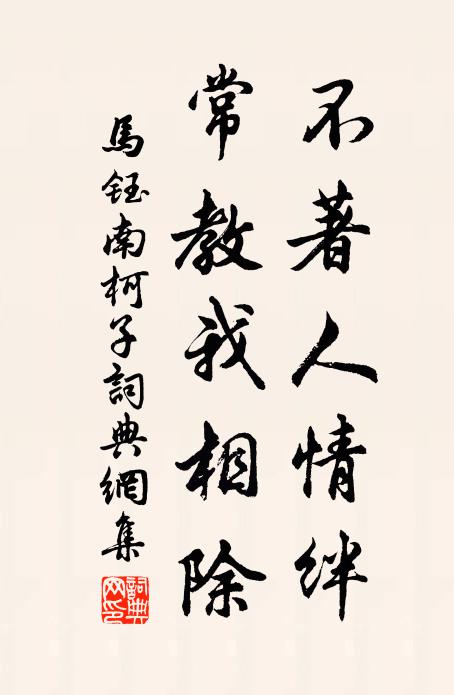 不著人情絆
常教我相除
馬鈺南柯子詞典網集
詞典網印